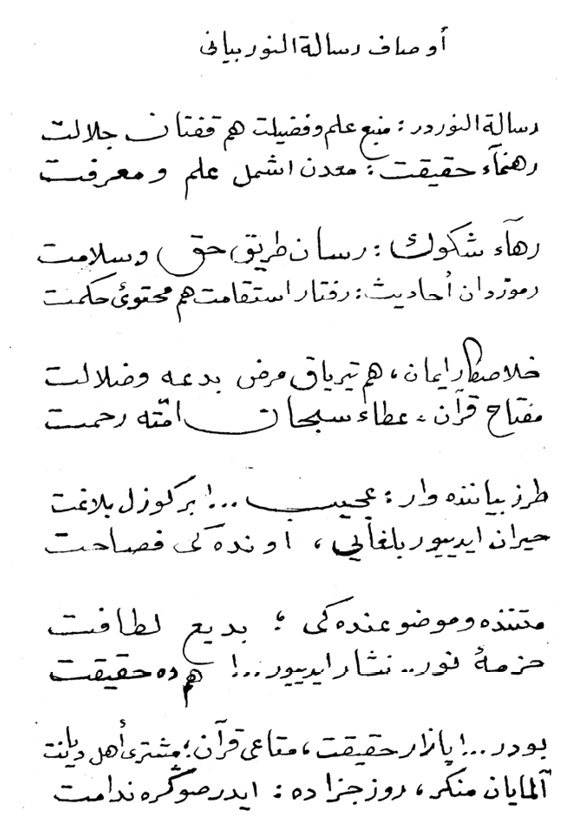 أوصاف رسالة النور بیانی
رسالة النوردر : منبع علم وفضیلت هم قفتان جلالت
رهنمآء حقیقت : معدن اشمل علم و معرفت
رهآء شکوك : رسان طریق حق وسلامت
رموزدان أحادیث : رفتار استقامت هم محتوئ حکمت
خلاصکار ایمان ، هم تیریاق مرض بدعه وضلالت
مفتاح قرآن ، عطاء سبحان امّته رحمت
طرز بیاننده وار : عجیب ..! بر کوزل بلاغت
حیران ایدییور بلغایی ، اونده کی فصاحت
متننده وموضوعنده کی ؛ بدیع لطافت
حزمۀ نور .. نشار ایدییور ..! هم ده حقیقت
بودر ..! پازار حقیقت ، متاعی قرآن ؛ مشتری أهل دیانت
آلمایان منکر ، روز جزاده : ایدر صوکره ندامت